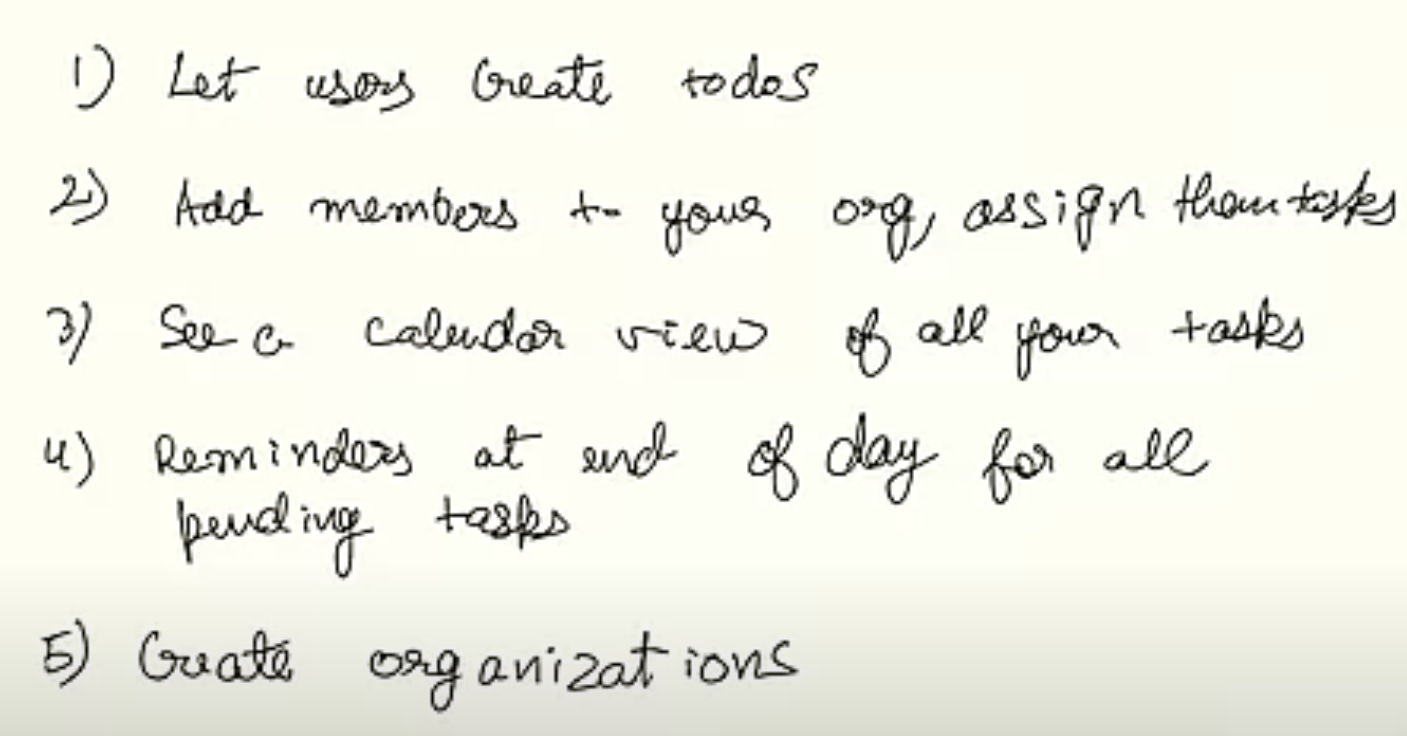 1) Let users Create todos
2) Add members to your org, assign them tasks
3) See a calendar view of all your tasks
4) Reminders at end of day for all
pending tasks
5) Create organizations